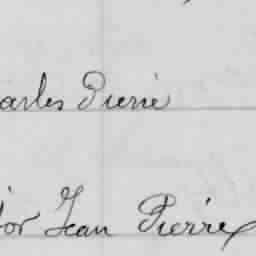 arles Pierre
tor Jean Pierre